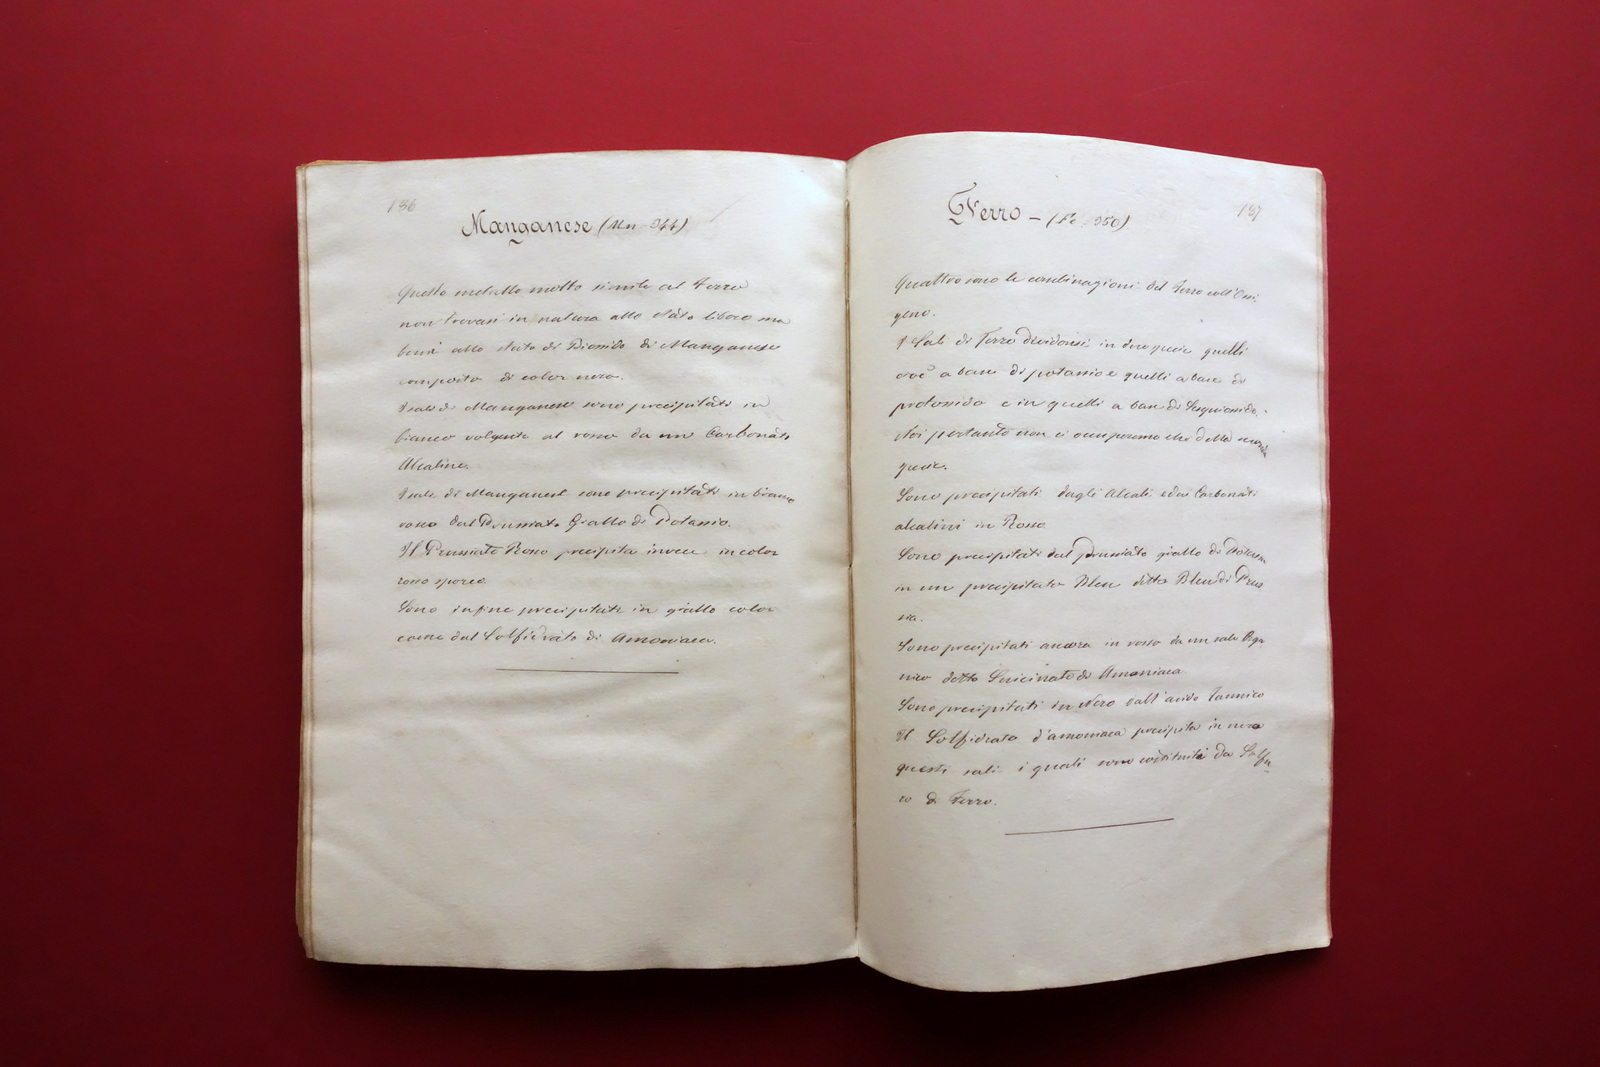 186
Manganese (Mn 344)
Questo metallo molto simile al Ferro
non trovasi in natura allo stato libero ma
bensì allo stato di Biossido di Manganese
composto di color nero.
I sali di Manganese sono precipitati in
bianco volgente al rosso da un Carbonato
Alcalino.
I sali di Manganese sono precipitati in bianco
roseo dal Prussiato Giallo di Potassio.
Il Prussiato Rosso precipita invece in color
rosso sporco
Sono infine precipitati in giallo color
carne dal Solfidrato di Amoniaca.
187
Ferro - (Fe 350)
Quattro sono le combinazioni del Ferro coll'Ossi
geno.
I Sali di Ferro dividonsi in due specie quelli
cioè a base di potassio e quelli a base di
protossido e in quelli a base di Sesquiossido.
Noi pertanto non ci occuperemo che della
specie.
Sono precipitati dagli Alcali e dai Carbonati
alcalini in Rosso
Sono precipitati dal prussiato giallo di Potassio
in un precipitato Bleu detto Bleu di Prus
sia.
Sono precipitati ancora in rosso da un sale Orga
nico detto Succinato di Amoniaca
Sono precipitati in Nero dall'acido Tannico
Il Solfidrato d'amoniaca precipita in nero
questi sali i quali sono costituiti da Solfu
ro di Ferro.